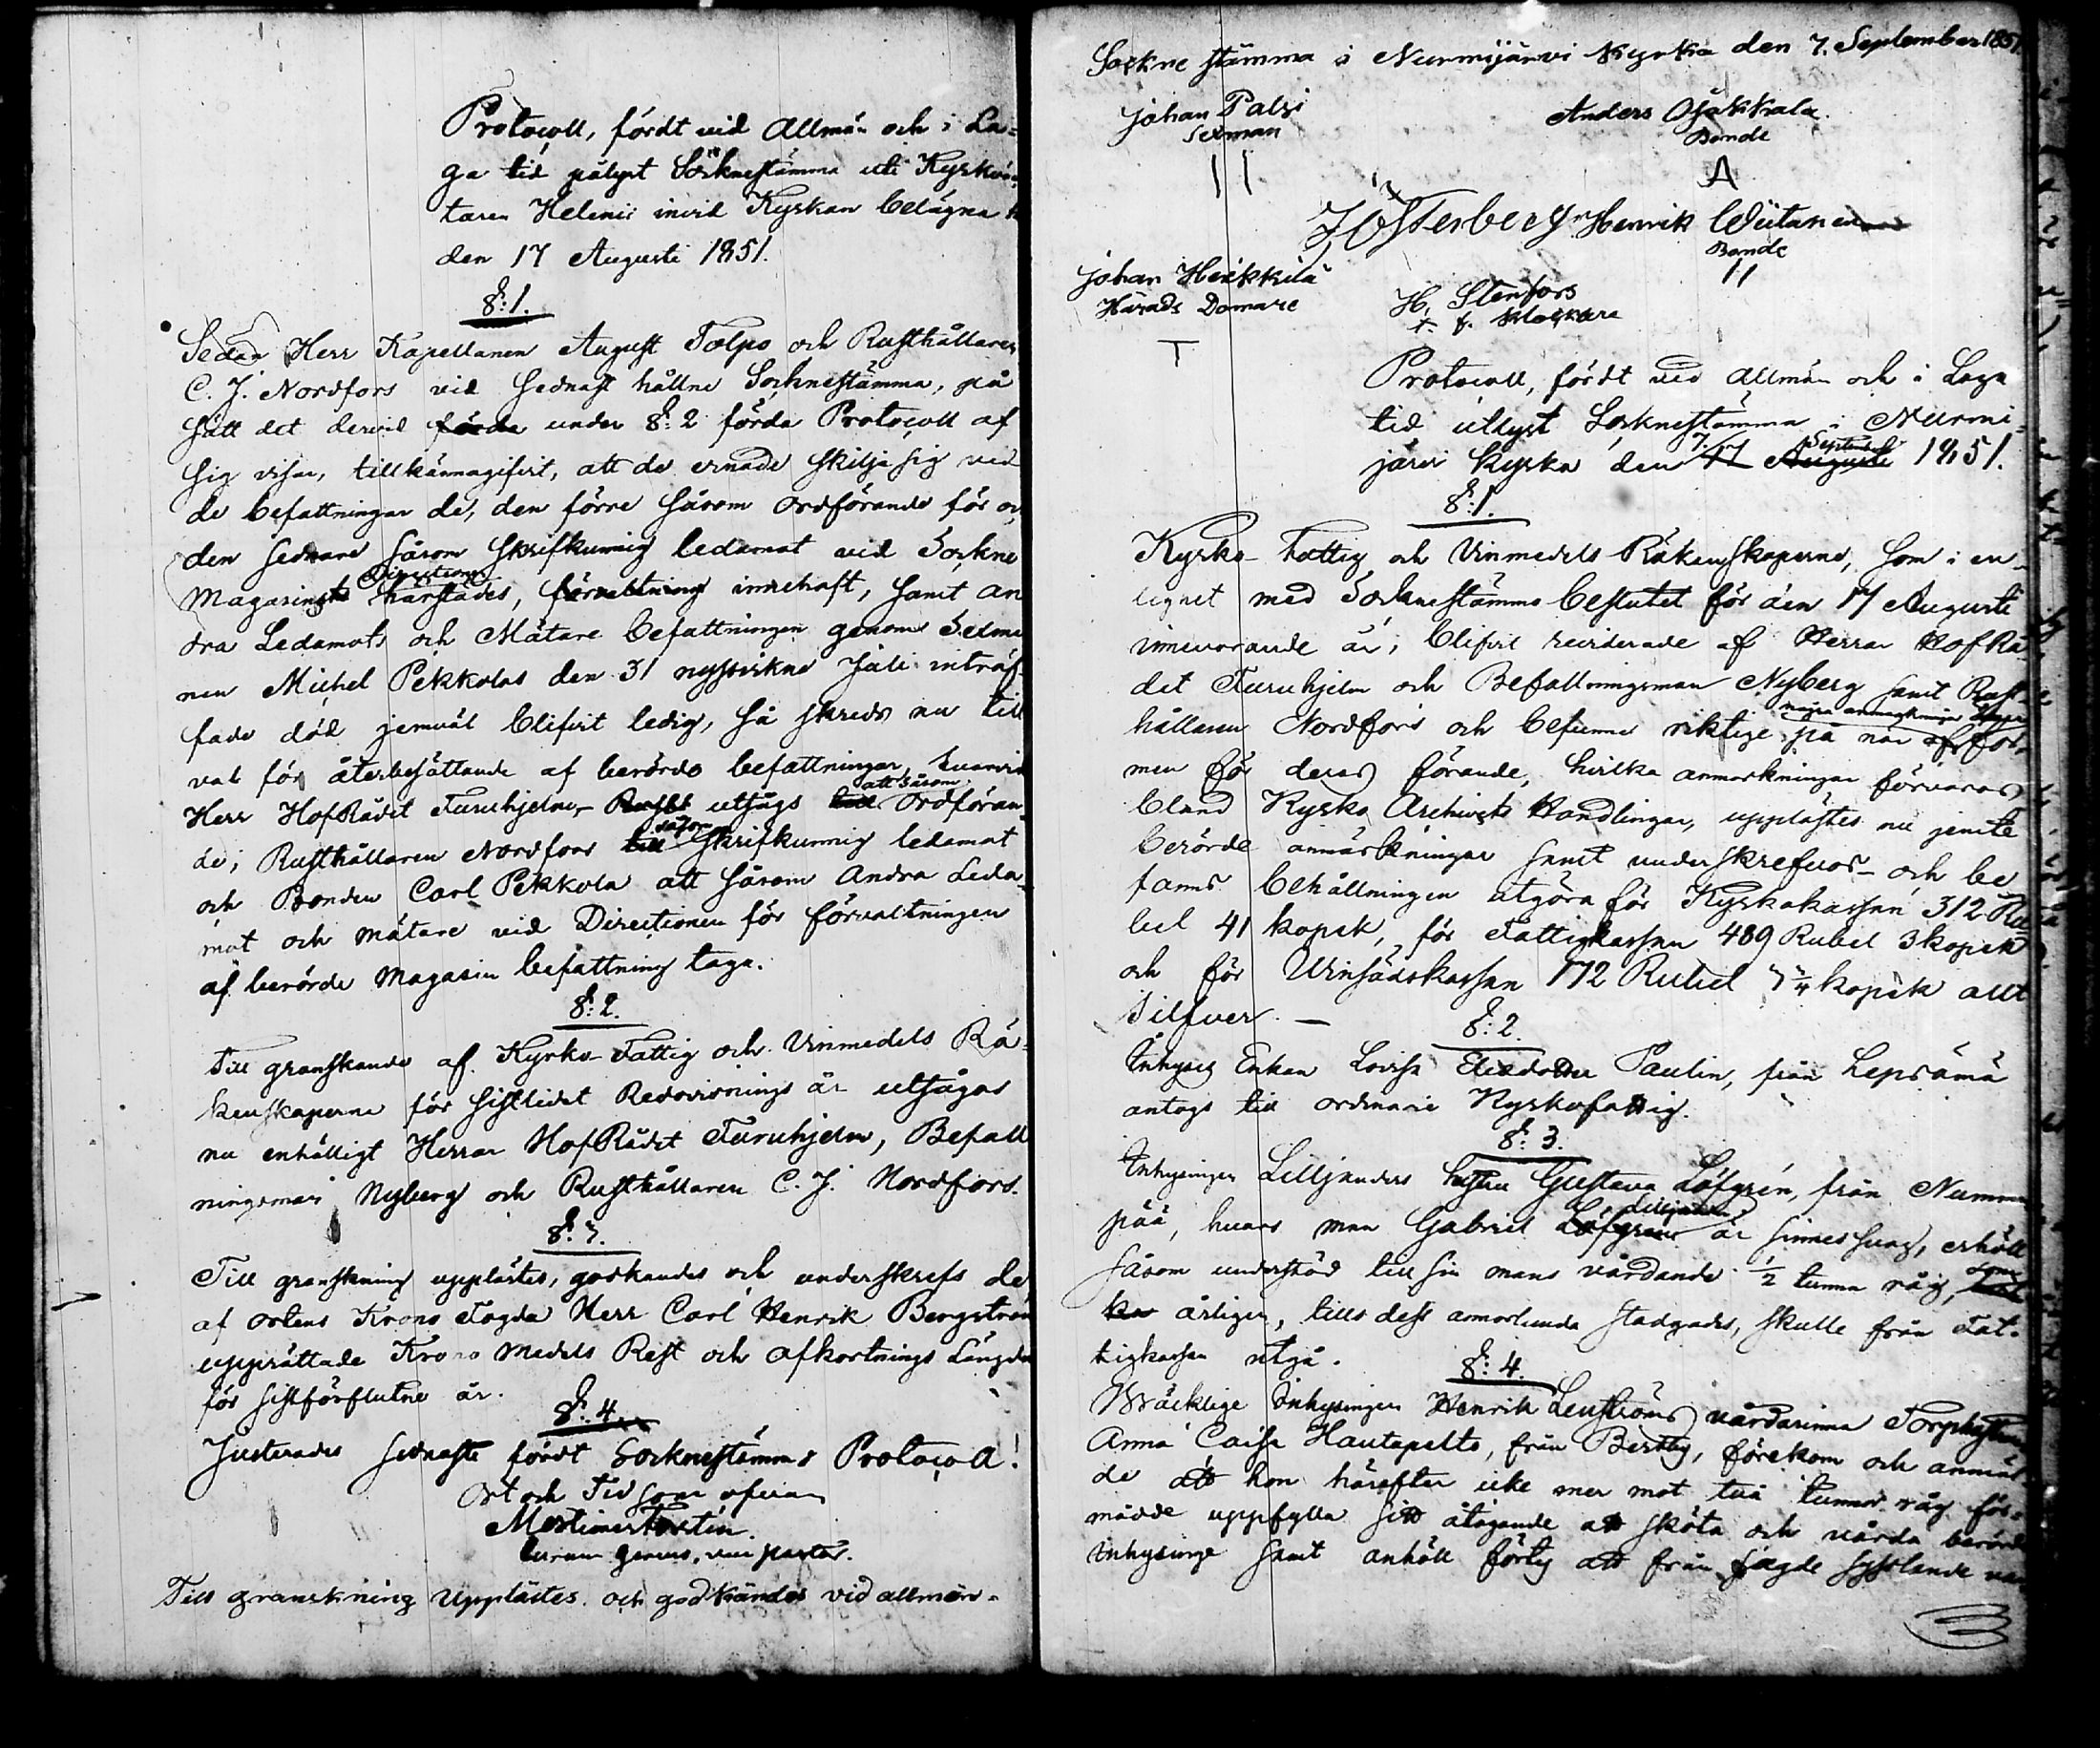 Protocoll, fördt vid Allmän och i La-
ga tid pålyst Socknestämma uti Kyrkvär-
taren Helenii invid Kyrkan belägna
den 17 Augusti 1851.
§:1.
Sedan Herr Kapellanen August Tolpo och Rusthållaren
C. J. Nordfors vid sednast hållne Socknestämma, på
sätt det dervid förda under §:2 förda Protocoll af
sig visar, tillkännagifvit, att de ernade skilja sig ved
de befattningar de, den förre såsom ordförande för
den sednare såsom skrifkunnig ledamot vid Sockne
Magasinets Directions förvaltning innehaft, samt an
dra Ledamots och Mätare befattningen genom Sexman
nen Michel Pekkolas den 31 nyssvikne Juli inträf-
fade död jemväl blifvit ledig, så skreds nu till
val för återbesättande af berörde befattningar, hvarvid
Herr HofRådet Furuhjelm utsågs att såsom Ordföran-
de, Rusthållaren Nordfors såsom skrifkunnig ledamot
och Bonden Carl Pekkola att såsom Andra Leda-
mot och mätare vid Directionen för förvaltningen
af berörde Magasin befattning taga.
§:2.
Till granskande af Kyrko- Fattig och Vinmedels Rä-
kenskaperne för sistledet Redovisnings år utsågos
nu enhälligt Herrar HofRådet Furuhjelm, Befall
ningsman Nyberg och Rusthållaren C. J. Nordfors.
§:3.
Till granskning upplästes, godkändes och underskrefs de
af ortens Krono Fogde Herr Carl Henrik Bergström
upprättade Krono Medels Rest och afkortnings Längder
för sistförflutne år.
§:4.
Justerades sednaste fördt Socknestämmo Protocoll!
Ort och Tid som ofvan
Till granskning Upplästes och godkändes vid allmän-
Sockne stämma i Nurmijärvi Kyrka den 7. September 1851
Johan Palsi
Sexman
Anders Ojakkala.
Bonde
A
J Österberg
Henrik Wiitanen
Bonde
Johan Heikkilä
Härads Domare
H, Stenfors
t. f. klockare
T
Protocoll, fördt vid Allmän och i Laga
tid utlyst Socknestämma i Nurmi-
järvi Kyrka den 7. 17 September Augusti 1851.
§:1.
Kyrko- Fattig och Vinmedels Räkenskaperne, som i en-
lighet med Socknestämmo beslutet för den 17 Augusti
innevarande år, blifvit reviderade af Herrar HofRå-
det Furuhjelm och Befallningsman Nyberg samt Rust-
hållaren Nordfors och befunne riktige på några anmärkningar när for-
men för deras förande, hvilka anmärkningar förvaras
bland Kyrko Archivets Handlingar, upplästes nu jemte
berörde anmärkningar samt underskrefvos och be
fanns behållningen utgöra för Kyrkokassan 312 Ru-
bel 41 kopek, för Fattigkassan 489 Rubel 3 kopek
och för Vinsädskassan 172 Rubel kopek allt
Silfver. —
§:2.
Inhyses Enkan Lovisa Paulin, från Lepsämä
antogs till ordinarie Kyrkofattig.
§:3.
Inhysingen Lilljanders hustru Gustava Löfgrén, från Numm
pää, hvars man Gabriel Löfgren Lilljander är sinnessvag, erhöll
såsom understöd till sin mans vårdande ½ tunna råg, som
årligen, tills dess annorlunda stadgades, skulle från Fat-
tigkassan utgå.
§:4.
Bräcklige Inhysingen Henrik Lenströms vårdarinna Torphustrun
Anna Caisa Hautapelto, från Bertby, förekom och anmäl-
de att hon härefter icke mer mot två tunnor råg för-
mådde uppfylla sitt åtagande att sköta och vårda berörde
inhysinge samt anhöll förty att från sagde sysslande